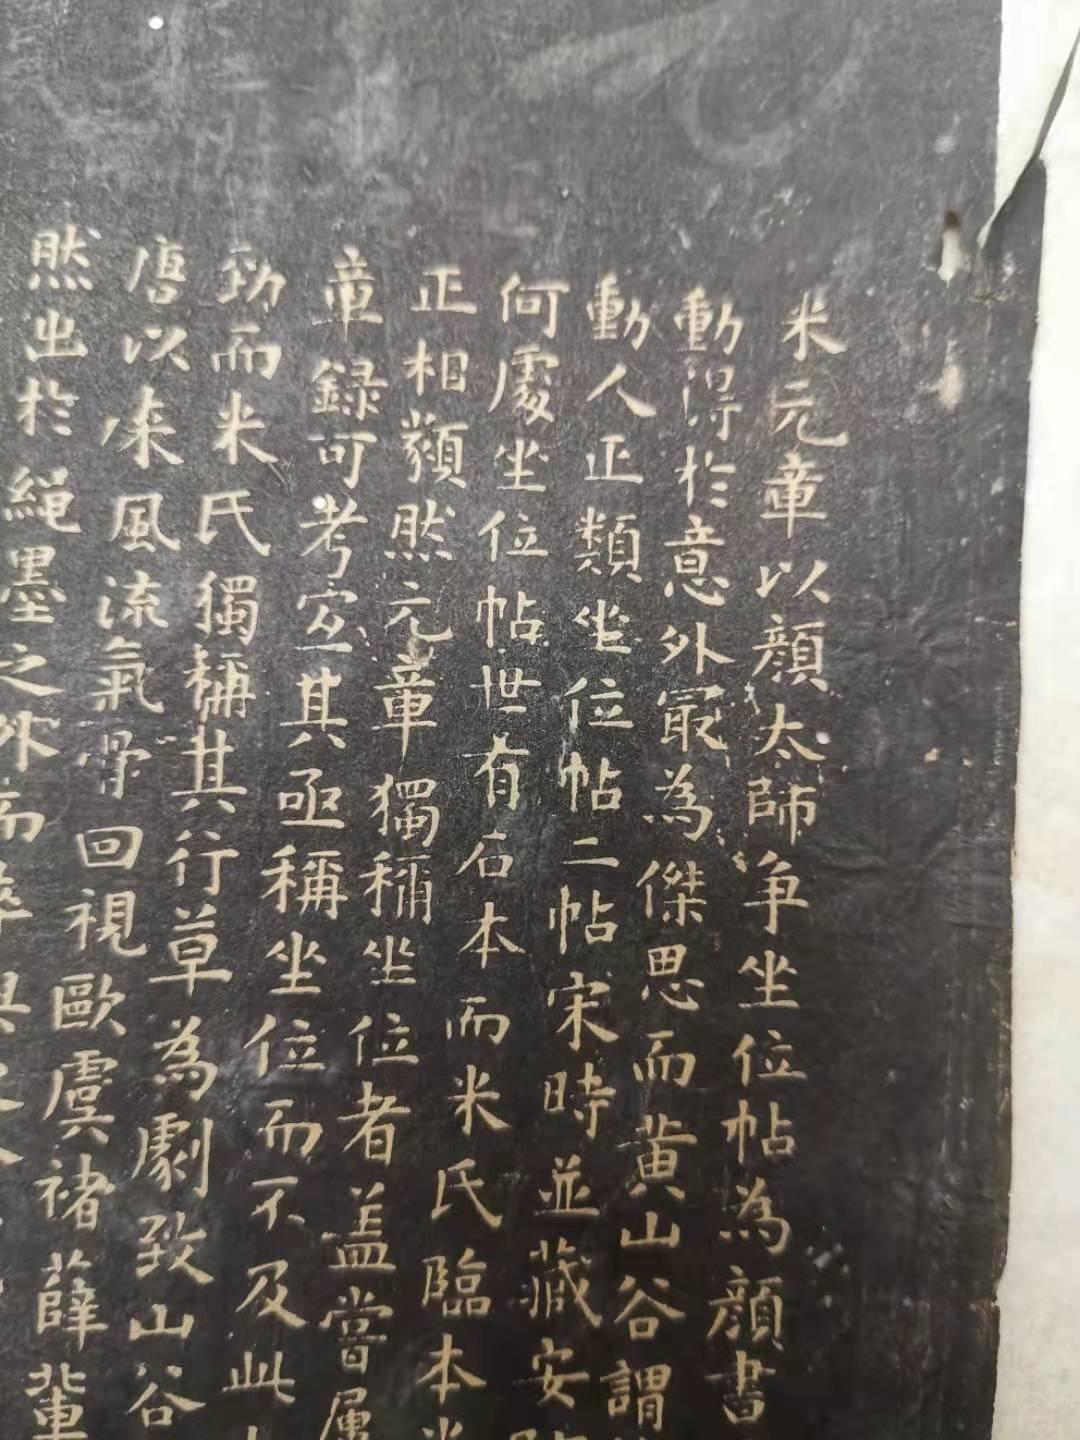 米元章以顔太師争坐位帖為顔書
動得於意外最為傑思而黄山谷謂
動人正類坐位帖二帖宋時並藏安
何處坐位帖世有石本而米氏臨本
正相類然元章獨稱坐位者盖嘗屬
章録可考㝎其亟稱坐位而不及此
勁而米氏獨稱其行草為劇致山谷
唐以来風流氣骨回視歐虞禇薛輩
然出於繩墨之外而卒與